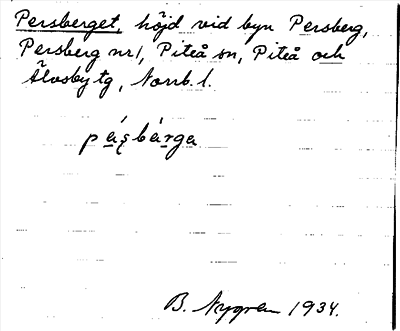 Persberget, höjd vid byn Persberg,
Persberg nr1, Piteå sn, Piteå och
Älvsby tg, Norrb. l.
pá̱s̨bá̱rga
B. Nygren 1934.